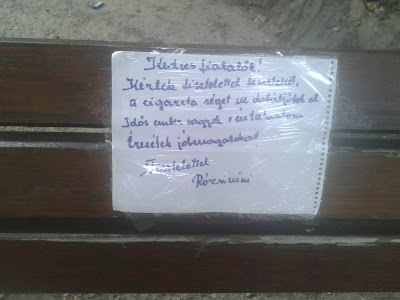 Kedves fiatalok!
Kérlek tisztelettel benneteket,
a cigareta véget ne dobáljátok el
Idős ember vagyok én takarítom
Érezzétek jól magatokat
Tisztelettel
Rózsi néni